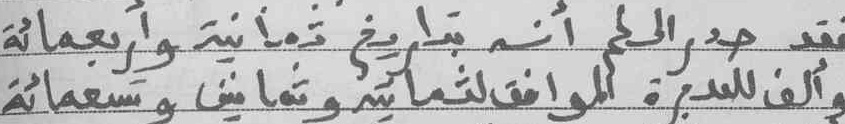 فقد صدر الحكم أنه بتاريخ ثمانية وأربعمائة
وألف للهجرة الموافق لثمانية وثمانين وتسعمائة